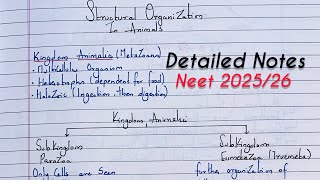 Structural Organization
In Animals
Kingdom Animalia (Metazoa)
• Multicellular Organism
• Heterotrophs (dependent for food)
• Holozoic (Ingestion then digestion)
Detailed Notes
Neet 2025/26
Kingdom Animalia
Subkingdom
Parazoa
Only Cells are Seen
Subkingdom
Eumetazoa
further organization of